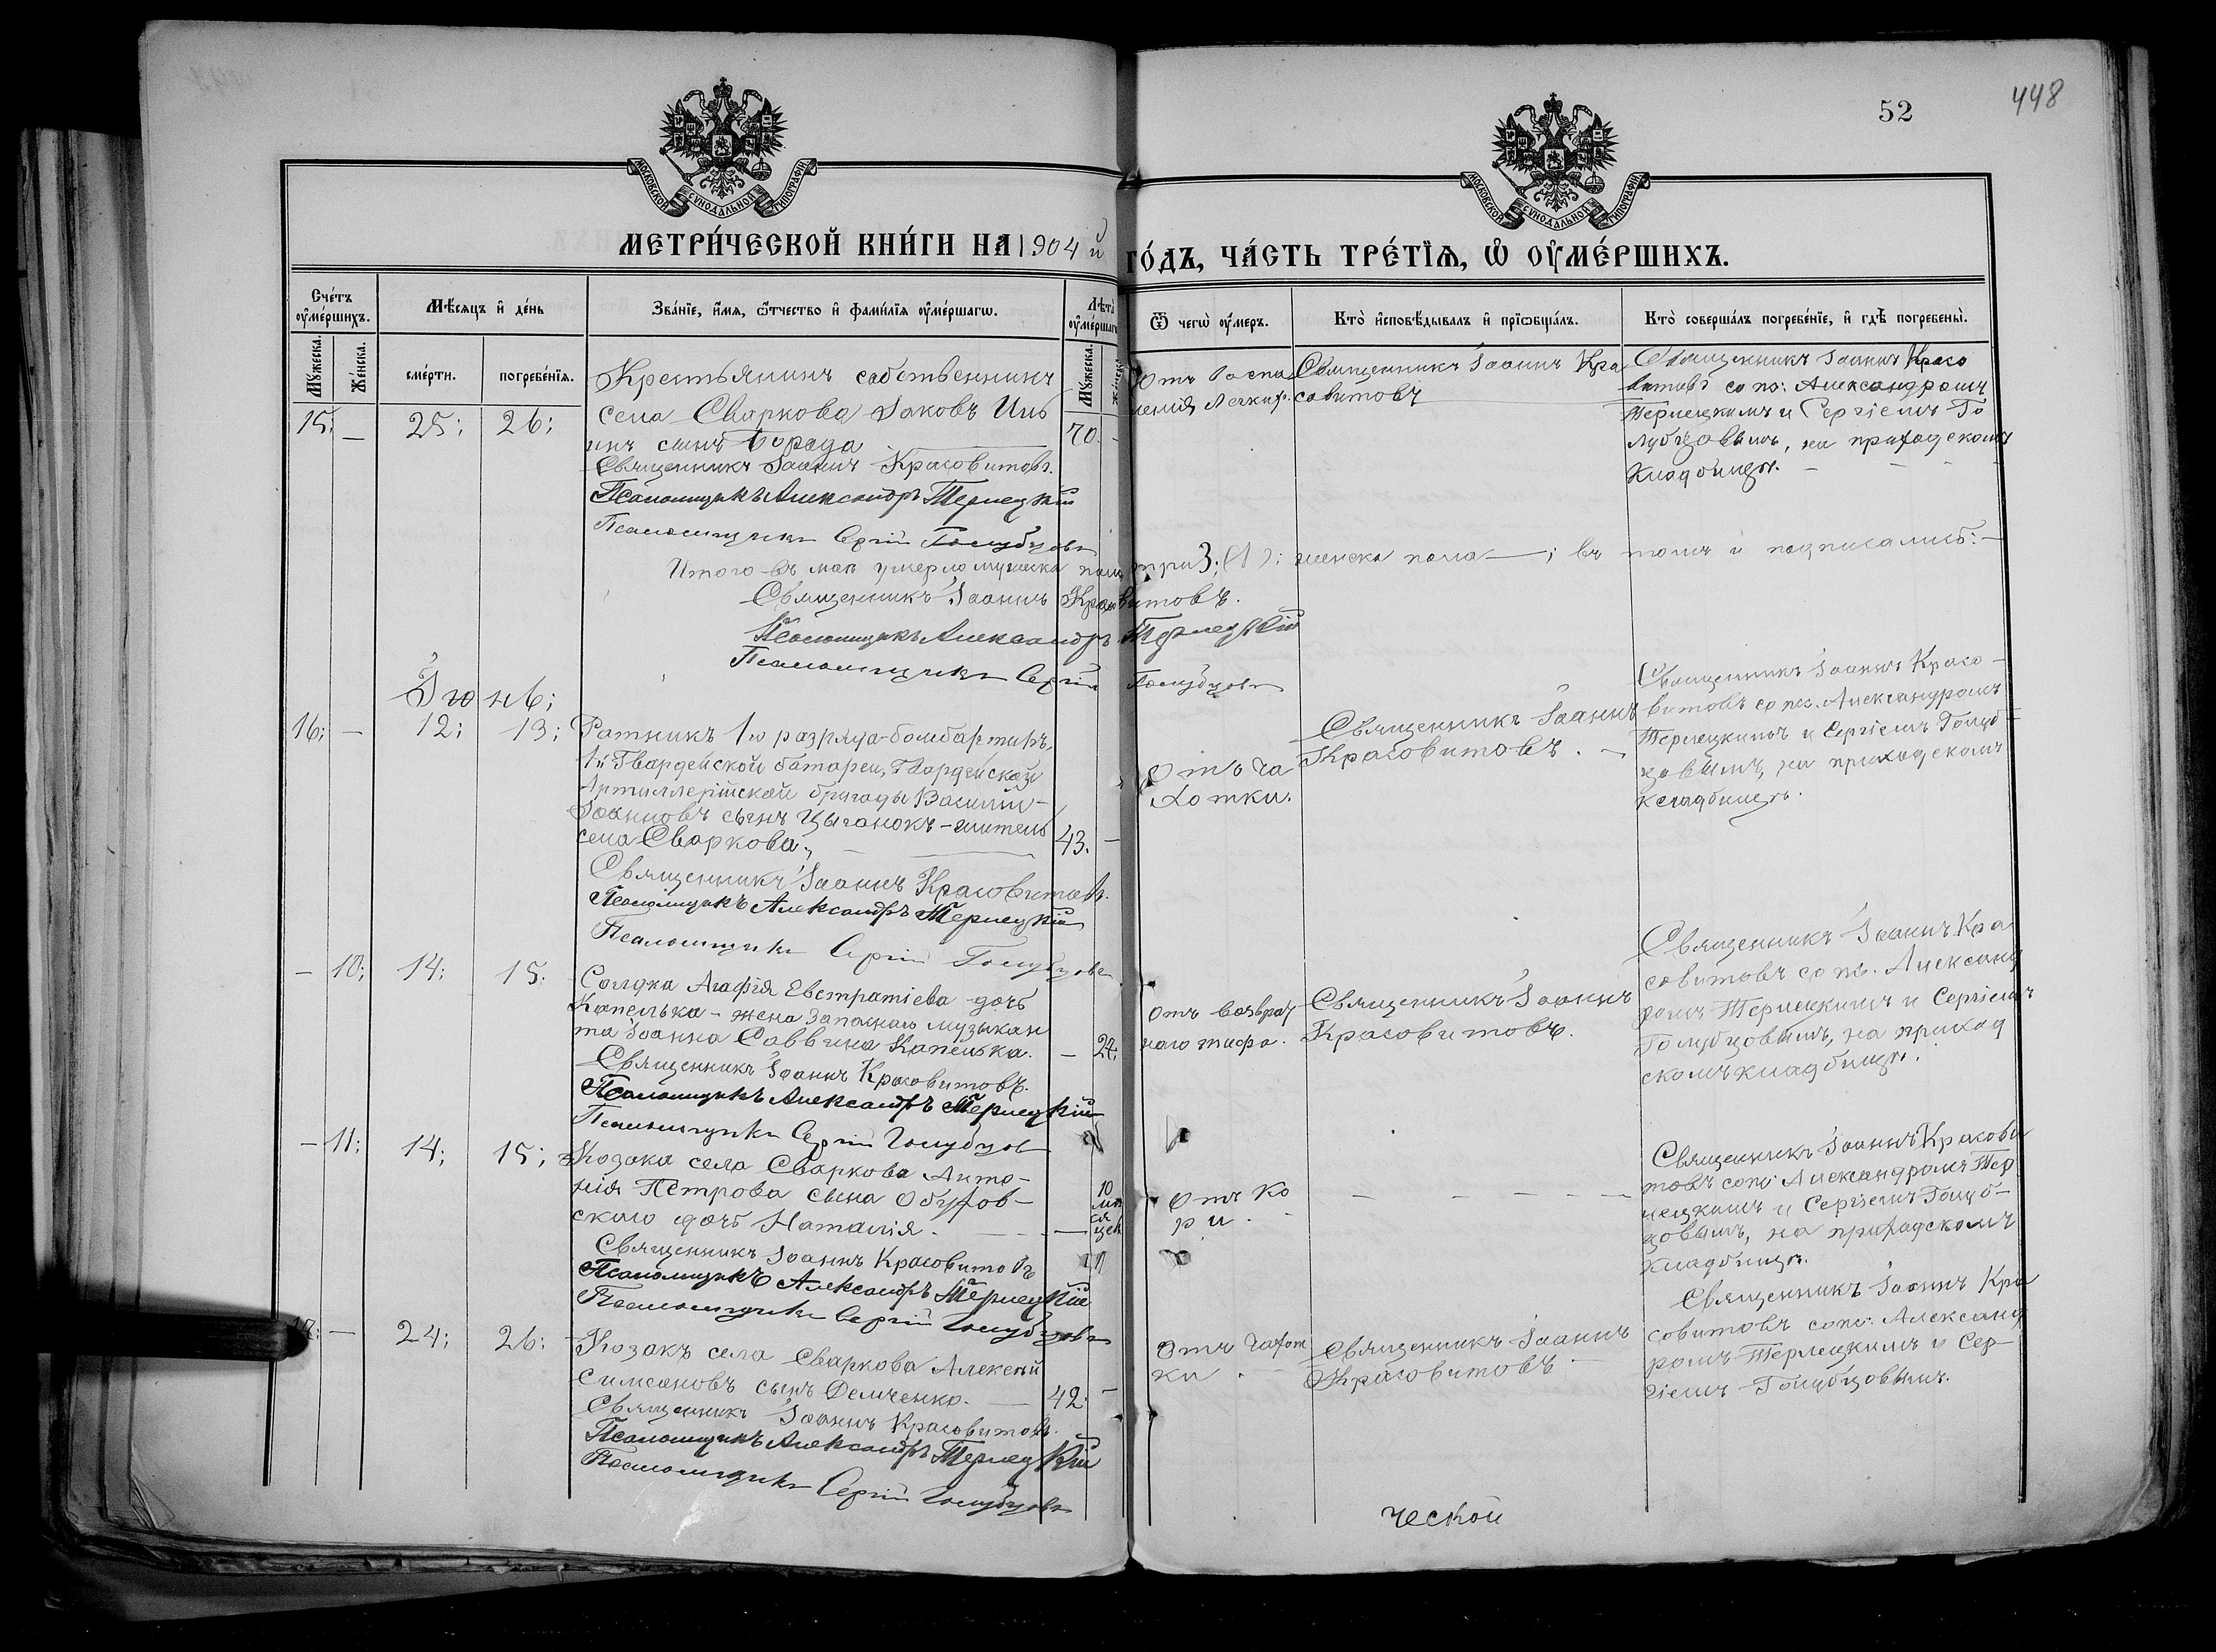 52
448
МОСКОВСКОЙ СѴНОДАЛЬНОЙ ТИПОГРАФІИ
МОСКОВСКОЙ СѴНОДАЛЬНОЙ ТИПОГРАФІИ
МЕТРИ́ЧЕСКОЙ КНИ́ГИ НА 1904 й ГО́ДЪ, ЧА́СТЬ ТРЕ́ТЇѦ, Ѡ҆ ОУ҆МЕ́РШИХЪ.
Сче́тъ оу҆ме́ршихъ.
Мѣ́сяцъ и҆ де́нь
Зва́нїе, и҆́мя, ѻ҆́тчество и҆ фами́лїя оу҆ме́ршагѡ.
Лѣта̀ оу҆ме́ршагѡ
Ѿ чегѡ̀ оу҆́меръ.
Кто̀ и҆сповѣ́дывалъ и҆ прїѻбща́лъ.
Кто̀ соверша́лъ погребе́нїе, и҆ гдѣ̀ погребены̀.
Мꙋ́жеска.
Же́нска.
сме́рти.
погребе́нїя.
Мꙋ́жеска.
Же́нска.
15; — 25; 26;
Крестьянинъ собственникъ
села Сваркова Іаковъ Иль
инъ сынъ Борода 70. —
Священникъ Іоаннъ Красовитовъ.
Псаломщикъ Александръ Терлецкій
Псаломщикъ Сергій Голубцовъ
Отъ Воспа
ленія Легких.
Священникъ Іоаннъ Кра
совитовъ
Священникъ Іоаннъ Красо
витовъ со пс: Александромъ
Терлецкимъ и Сергіемъ Го
лубцовымъ, на приходскомъ
кладбищѣ. —
Итого въ маѣ умерло мужеска пола три 3; (1): женска пола —; въ томъ и подписались: —
Священникъ Іоаннъ Красовитовъ.
Псаломщикъ Александръ Терлецкій
Псаломщикъ Сергій Голубцовъ
Іюнь;
16; — 12; 13;
Ратникъ 1го разряда-бомбардиръ,
1й Гвардейской батареи, Гвардейской
Артиллерійской бригады Василій —
Іоанновъ сынъ Цыганокъ — житель
села Сваркова; 43. —
Священникъ Іоаннъ Красовитовъ.
Псаломщикъ Александръ Терлецкій
Псаломщикъ Сергій Голубцовъ
Отъ ча
хотки.
Священникъ Іоаннъ
Красовитовъ. —
Священникъ Іоаннъ Красо —
витовъ со пс. Александромъ
Терлецкимъ и Сергіемъ Голуб —
цовымъ, на приходскомъ
кладбищѣ.
— 10; 14; 15:
Солдка Агафія Евстратіева дочь
Капелька — жена запаснаго музыкан
та Іоанна Саввина Капелька. — 24;
Священникъ Іоаннъ Красовитовъ.
Псаломщикъ Александръ Терлецкій
Псаломщикъ Сергій Голубцов
Отъ возврат
наго тифа.
Священникъ Іоаннъ
Красовитовъ.
Священникъ Іоаннъ Кра
совитовъ со пс. Александ
ромъ Терлецкимъ и Сергіемъ
Голубцовымъ, на приход
скомъ кладбищѣ.
— 11; 14; 15;
Козака села Сваркова Анто —
нія Петрова сына Обухов —
скаго дочь Наталія. — 10 мѣсяцев
Священникъ Іоаннъ Красовитовъ
Псаломщикъ Александръ Терлецкій
Псаломщикъ Сергій Голубцовъ
Отъ ко
ри. —
— — — —
Священникъ Іоаннъ Красови
товъ со пс: Александромъ Тер
лецкимъ и Сергіемъ Голуб —
цовымъ, на приходскомъ
кладбищѣ.
17: — 24; 26:
Козакъ села Сваркова Алексѣй
Симеоновъ сынъ Демченко. — 42. —
Священникъ Іоаннъ Красовитовъ.
Псаломщикъ Александръ Терлецкій
Псаломщикъ Сергій Голубцовъ
Отъ чахот
ки.
Священникъ Іоаннъ
Красовитовъ
Священникъ Іоаннъ Кра
совитовъ со пс. Александ
ромъ Терлецкимъ и Сер —
гіемъ Голубцовымъ.
ческой